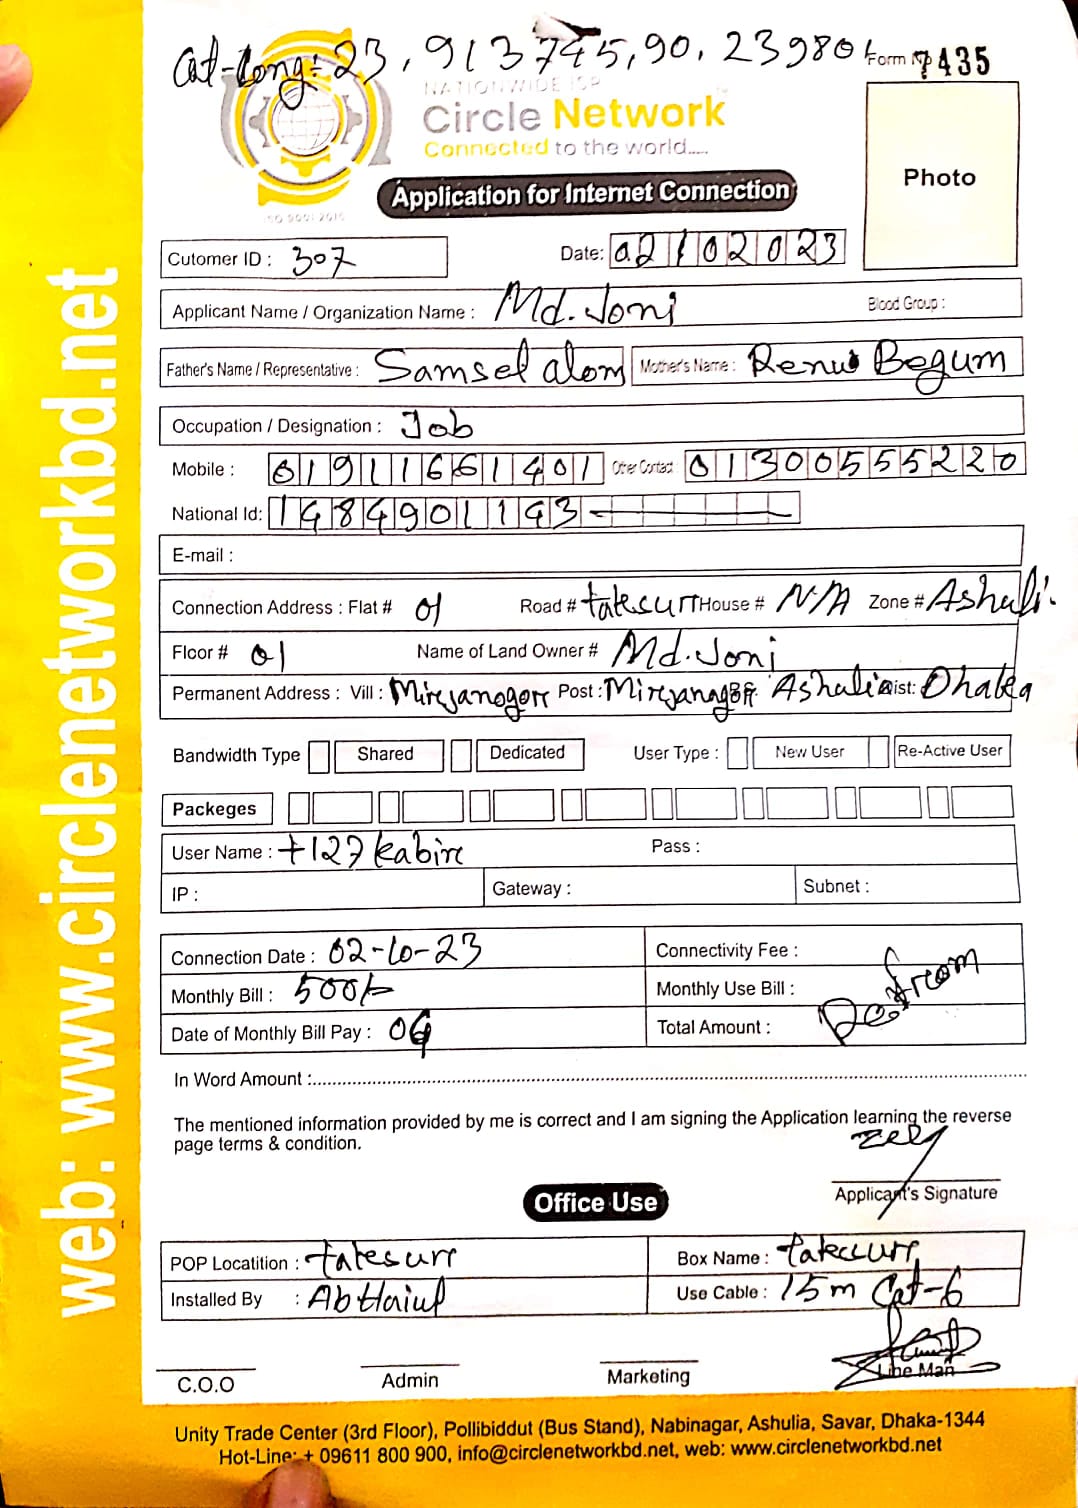 Cat-Long: 23,913745,90.23980 Form No 7435
NATIONWIDE ISP
Circle Network
Connected to the world.....
ISO 9001:2015
Application for Internet Connection
Photo
Cutomer ID : 307 Date: 02/02023
Applicant Name / Organization Name : Md. Joni Blood Group :
Father's Name / Representative : Samsel alom Mother's Name : Renu Begum
Occupation / Designation : Job
Mobile : 01911661401 Other Contact : 01300555220
National Id: 1484901193
E-mail :
Connection Address : Flat # 01 Road # tatesurr House # N/A Zone # Ashuli.
Floor # 01 Name of Land Owner # Md. Joni
Permanent Address : Vill : Mirzanogorr Post : Ashulia Dist: Dhaka
Bandwidth Type Shared Dedicated User Type : New User Re-Active User
Packeges
User Name : +127 kabire Pass :
IP : Gateway : Subnet :
Connection Date : 02-10-23 Connectivity Fee :
Monthly Bill : 500/- Monthly Use Bill :
Date of Monthly Bill Pay : Total Amount :
In Word Amount :
The mentioned information provided by me is correct and I am signing the Application learning the reverse
page terms & condition.
Applicant's Signature
Office Use
POP Locatition : tatesurr Box Name :
Installed By : Use Cable : 15m Cat-6
C.O.O Admin Marketing Line Man
Unity Trade Center (3rd Floor), Pollibiddut (Bus Stand), Nabinagar, Ashulia, Savar, Dhaka-1344
Hot-Line: + 09611 800 900, info@circlenetworkbd.net, web: www.circlenetworkbd.net
web: www.circlenetworkbd.net